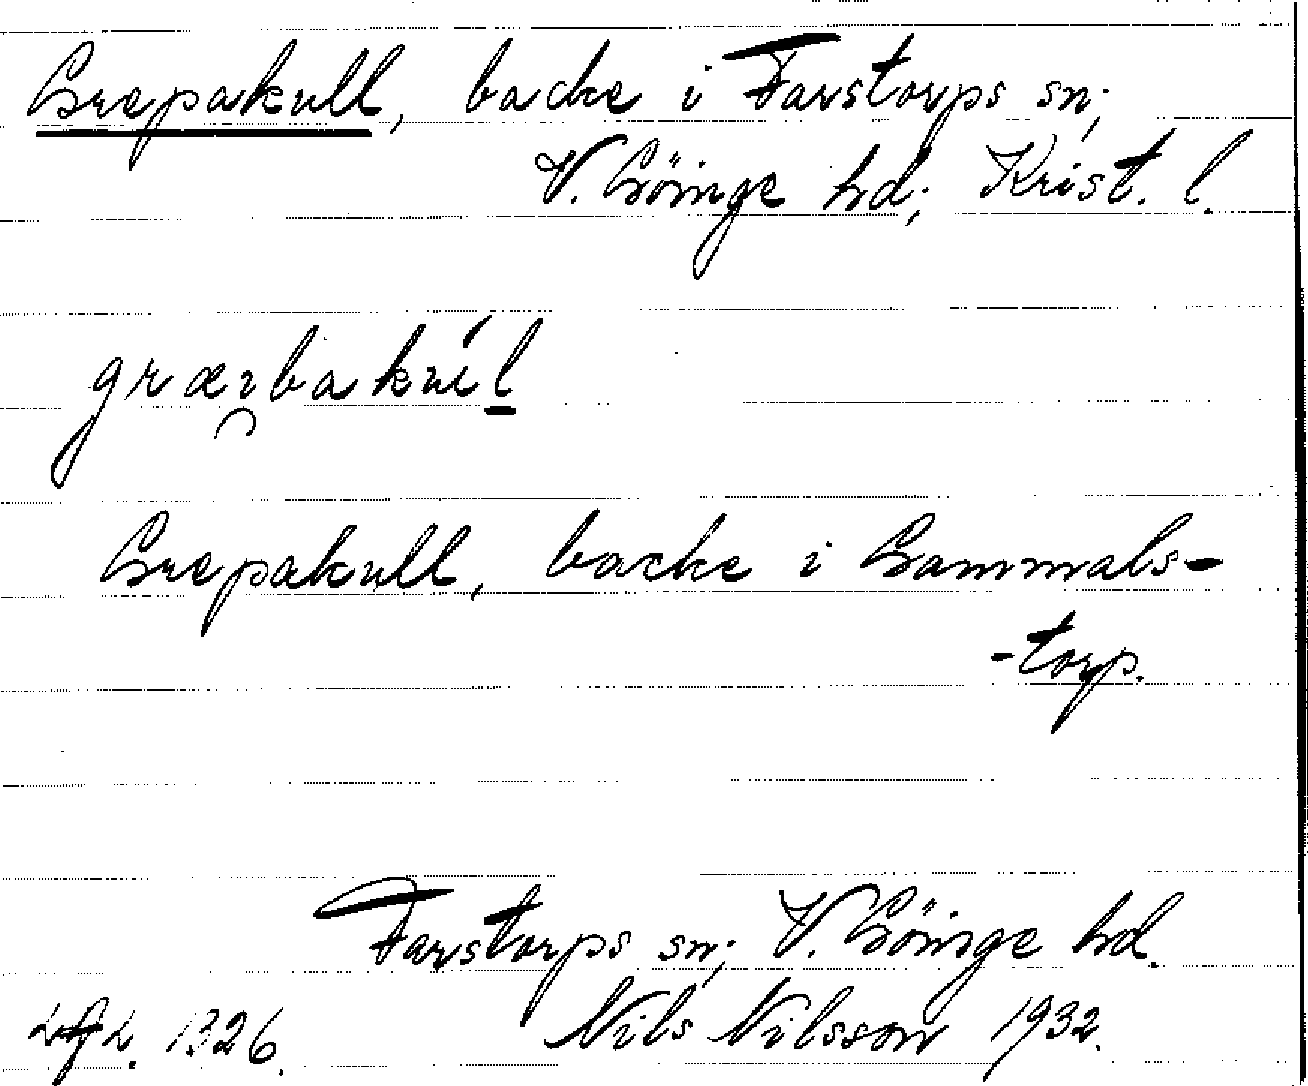 Grepakull, backe i Farstorps sn;
V. Göinge hd; Krist. l.
græi̯bakúl̲
Grepakull, backe i Gammals-
-torp.
Farstorps sn; V. Göinge hd.
1326. Nils Nilsson 1932.